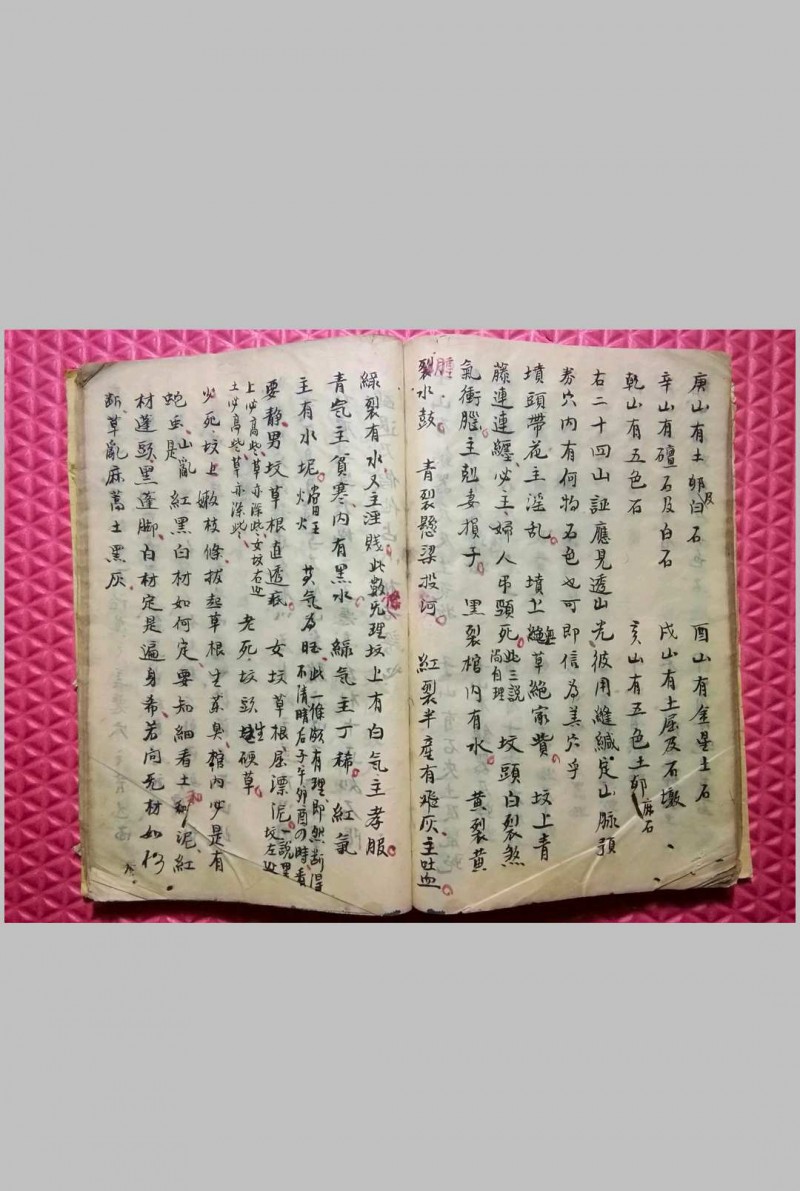 庚山有土卵及白石　酉山有金星土石
辛山有礓石及白石　戌山有土屈及石墩
乾山有五色石　亥山有五色土卵麻石
右二十四山証應見透山光彼用縫緘定山脈預
券穴内有何物石色也可即信為美穴乎
墳頭帶花主淫乱　墳上草絕家貲　坟上青
藤連連纏必主婦人弔頸死此三説尚自理　坟頭白裂煞
氣衝腦主剋妻損子　黑裂棺内有水　黄裂黄
腫　裂水鼓　青裂懸梁投河　紅裂半産有癍灰主吐血
綠裂有水又主淫賤此數无理坟上有白気主孝服
青気主貧寒内有黑水　綠気主丁稀　紅氣
主有水坭　黄気為旺此一條頗有理即然斷得
不清晴后子午卯酉の時看
要静男坟草根直透底　女坟草根屈漂泥一説男坟左边
上必高些草亦深些女坟右边
土必高些草亦深些　老死坟頭生硬草
少死坟上嫩枝條　拔起草根生茶臭棺内必是有
蛇虫是山亂　紅黑白材如何定要知細看土和泥紅
材蓬頭黑蓬脚白材定是遍身希若问无材如何
断草亂麻蒿土黑灰